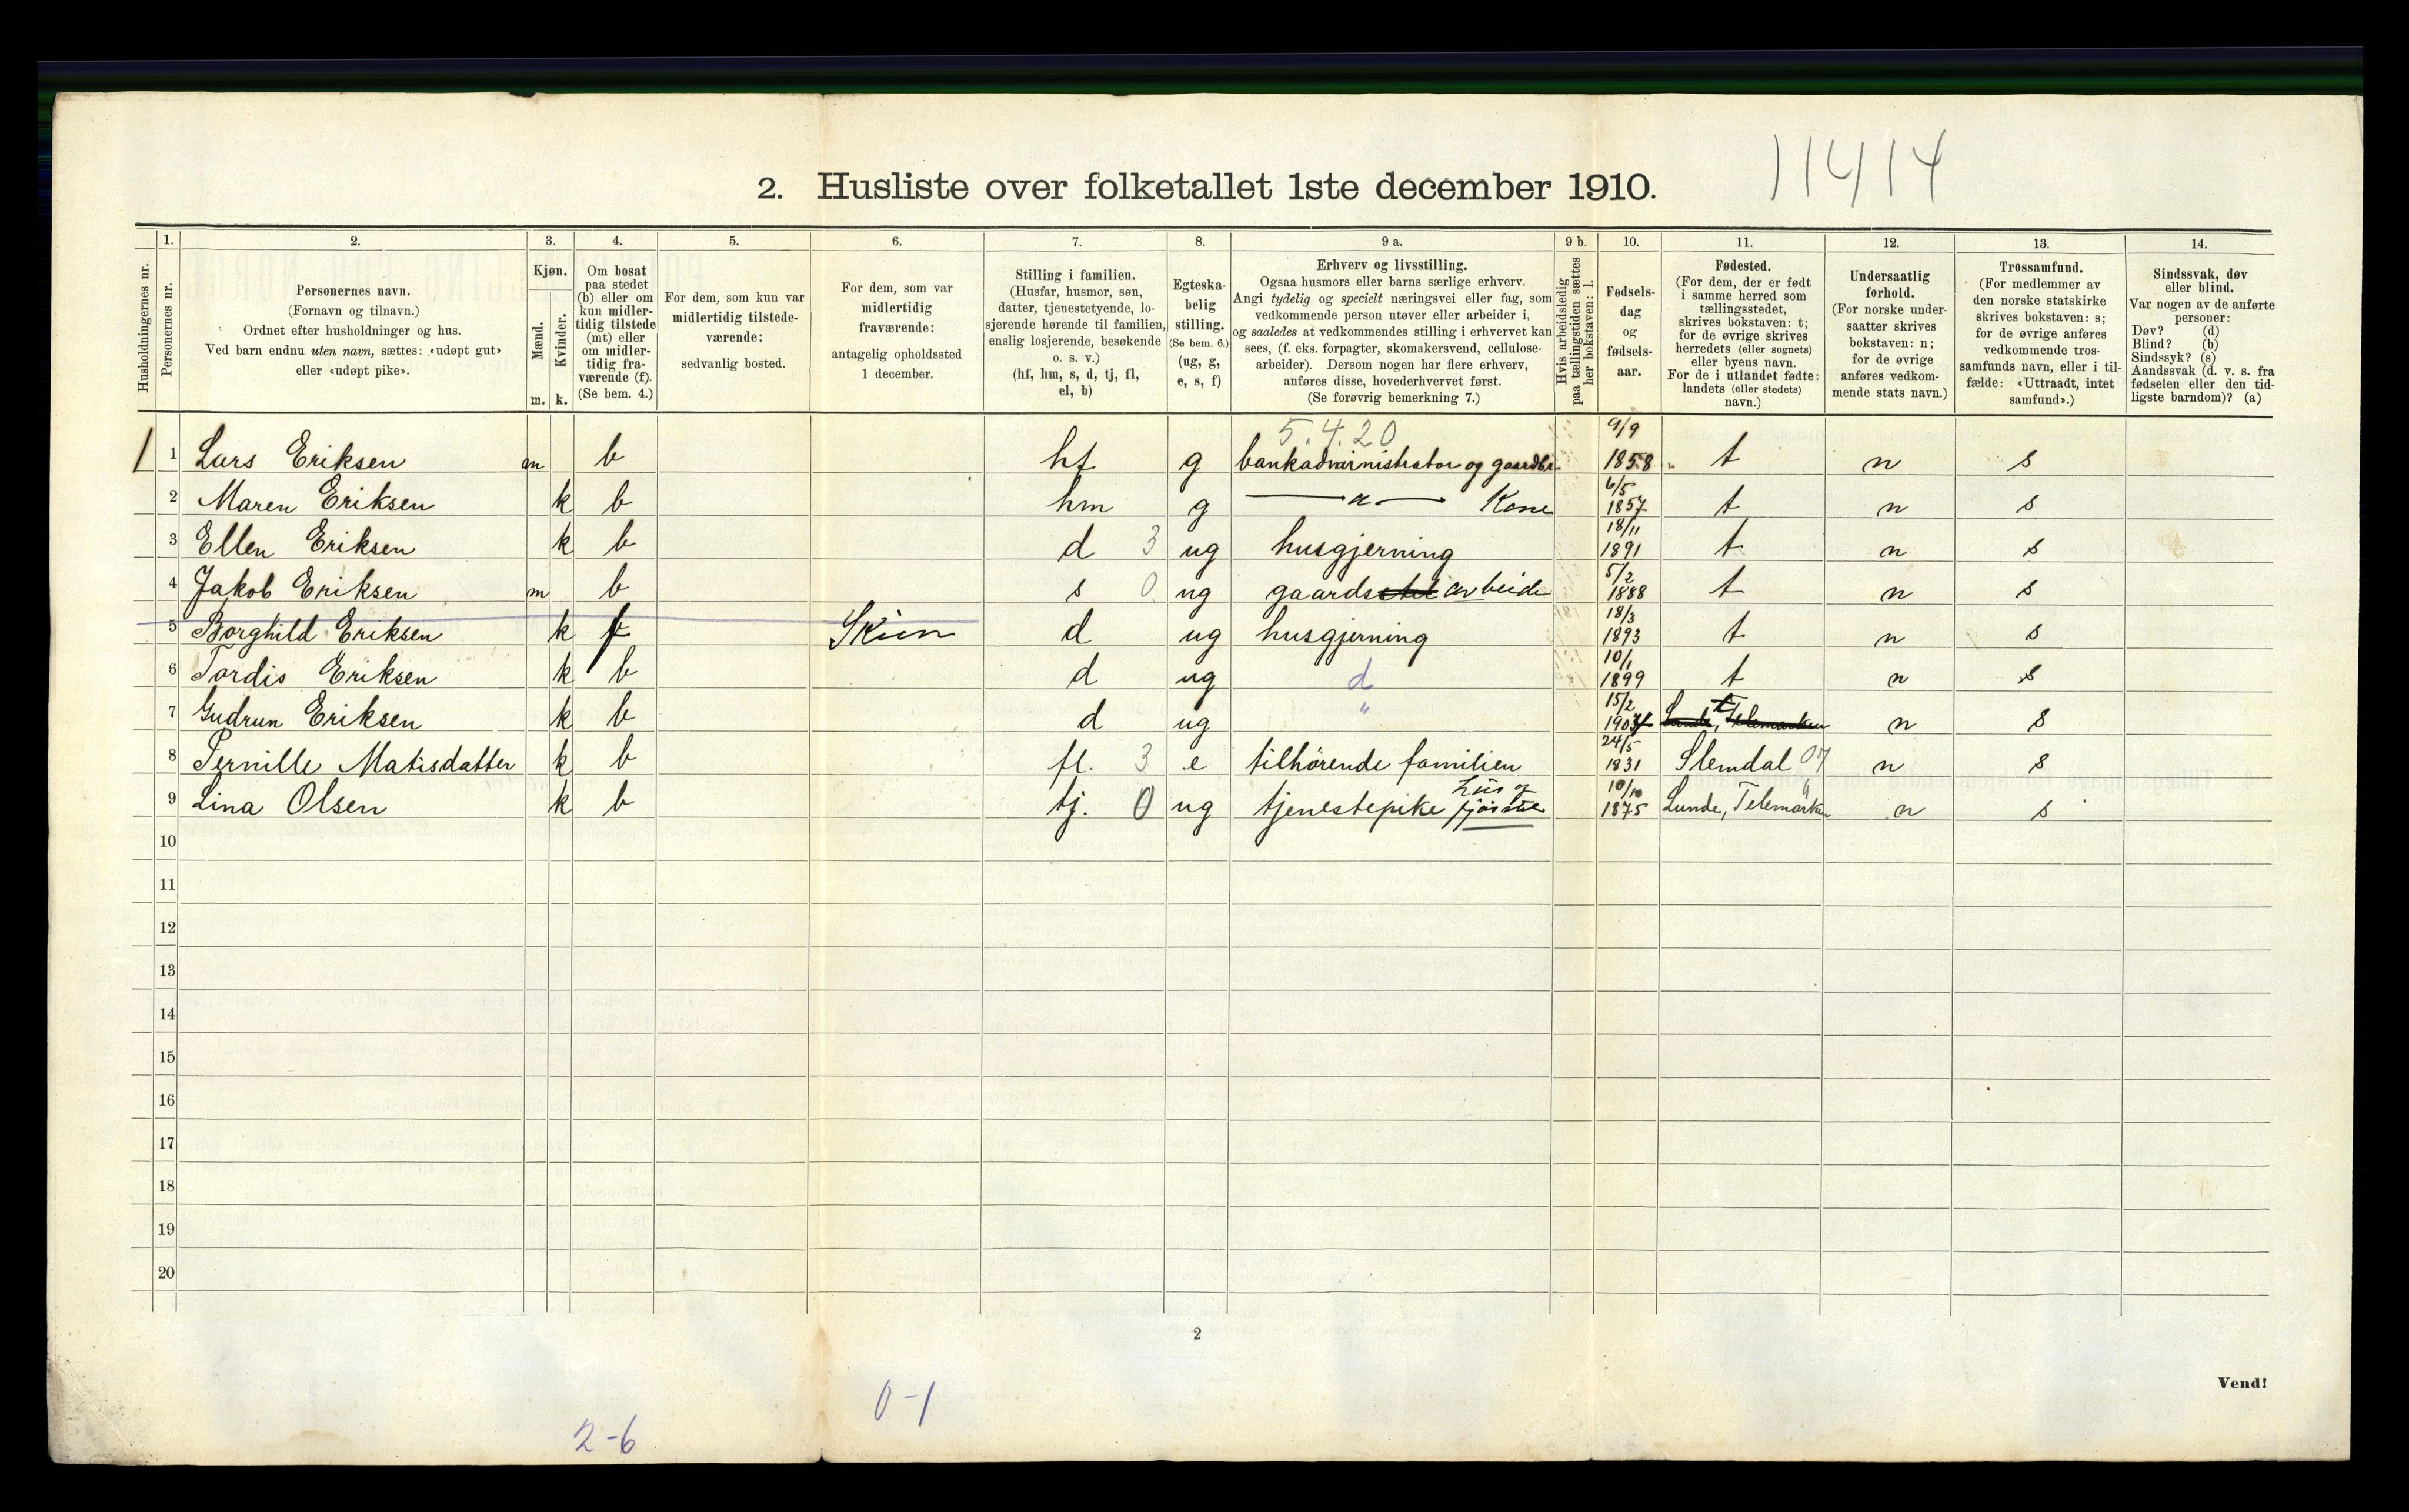 2. Husliste over folketallet 1ste december 1910. 11414
Husholdningernes nr.
1. Personernes nr.
2. Personernes navn.
(Fornavn og tilnavn.)
Ordnet efter husholdninger og hus.
Ved barn endnu uten navn, sættes: «udøpt gut»
eller «udøpt pike».
3. Kjøn.
Mænd. m.
Kvinder. k.
4. Om bosat
paa stedet
(b) eller om
kun midler-
tidig tilstede
(mt) eller
om midler-
tidig fra-
værende (f).
(Se bem. 4.)
5. For dem, som kun var
midlertidig tilstede-
værende:
sedvanlig bosted.
6. For dem, som var
midlertidig
fraværende:
antagelig opholdssted
1 december.
7. Stilling i familien.
(Husfar, husmor, søn,
datter, tjenestetyende, lo-
sjerende hørende til familien,
enslig losjerende, besøkende
o. s. v.)
(hf, hm, s, d, tj, fl,
el, b)
8. Egteska-
belig
stilling.
(Se bem. 6.)
(ug, g,
e, s, f)
9 a. Erhverv og livsstilling.
Ogsaa husmors eller barns særlige erhverv.
Angi tydelig og specielt næringsvei eller fag, som
vedkommende person utøver eller arbeider i,
og saaledes at vedkommendes stilling i erhvervet kan
sees, (f. eks. forpagter, skomakersvend, cellulose-
arbeider). Dersom nogen har flere erhverv,
anføres disse, hovederhvervet først.
(Se forøvrig bemerkning 7.)
9 b. Hvis arbeidsledig
paa tællingstiden sættes
her bokstaven: l.
10. Fødsels-
dag
og
fødsels-
aar.
11. Fødested.
(For dem, der er født
i samme herred som
tællingsstedet,
skrives bokstaven: t;
for de øvrige skrives
herredets (eller sognets)
eller byens navn.
For de i utlandet fødte:
landets (eller stedets)
navn.)
12. Undersaatlig
forhold.
(For norske under-
saatter skrives
bokstaven: n;
for de øvrige
anføres vedkom-
mende stats navn.)
13. Trossamfund.
(For medlemmer av
den norske statskirke
skrives bokstaven: s;
for de øvrige anføres
vedkommende tros-
samfunds navn, eller i til-
fælde: «Uttraadt, intet
samfund».)
14. Sindssvak, døv
eller blind.
Var nogen av de anførte
personer:
Døv? (d)
Blind? (b)
Sindssyk? (s)
Aandssvak (d. v. s. fra
fødselen eller den tid-
ligste barndom)? (a)
5.4.20
1 1 Lars Eriksen m b hf g bankadministrator og gaardbr. 9/9 1858 t n s
2 Maren Eriksen k b hm g — " — Kone 6/5 1857 t n s
3 Ellen Eriksen k b d 3 ug husgjerning 18/11 1891 t n s
4 Jakob Eriksen m b s 0 ug gaards arbeide 5/2 1888 t n s
5 Borghild Eriksen k f Skien d ug husgjerning 18/3 1893 t n s
6 Tordis Eriksen k b d ug d 10/1 1899 t n s
7 Gudrun Eriksen k b d ug " 15/2 1903 Lunde, Telemarken t n s
8 Pernille Matisdatter k b fl. 3 e tilhørende familien 24/5 1831 Slemdal 07 n s
9 Lina Olsen k b tj. 0 ug tjenestepike hus og fjøsstel 10/10 1875 Lunde, Telemarken n s
10
11
12
13
14
15
16
17
18
19
20
2
Vend!
0-1
2-6